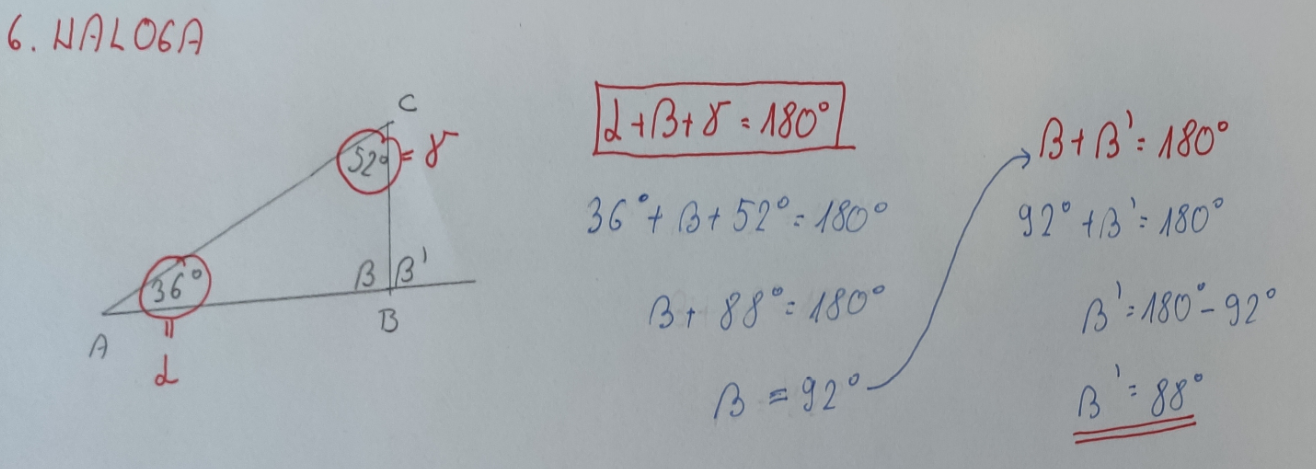 6. NALOGA
C
52° = γ
36°
β β'
A
B
=
α
α + β + γ = 180°
36° + β + 52° = 180°
β + 88° = 180°
β = 92°
β + β' = 180°
92° + β' = 180°
β' = 180° - 92°
β' = 88°